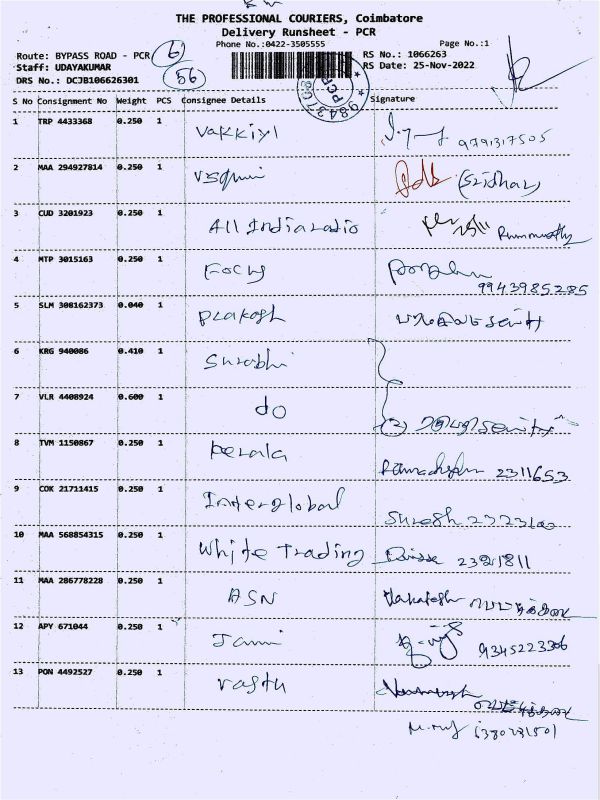 THE PROFESSIONAL COURIERS, Coimbatore
Delivery Runsheet - PCR
Phone No.:0422-3505555
Page No.:1
Route: BYPASS ROAD - PCR 6
Staff: UDAYAKUMAR
RS No.: 1066263
DRS No.: DCJB106626301
56
RS Date: 25-Nov-2022
PCR
S No Consignment No Weight PCS Consignee Details Signature
1 TRP 4433368 0.250 1 Vakkiyl
2 MAA 294927814 0.250 1 (Sridhar)
3 CUD 3201923 0.250 1 All India radio
4 MTP 3015163 0.250 1 Focus
9943985285
5 SLM 308162373 0.040 1 Prakash
6 KRG 940086 0.410 1 Surabhi
7 VLR 4408924 0.600 1 do
(2)
8 TVM 1150867 0.250 1 Kerala
2311653
9 COK 21711415 0.250 1 Interglobal
Suresh
10 MAA 568854315 0.250 1 White Trading
11 MAA 286778228 0.250 1 ASN
12 APY 671044 0.250 1 Jami
9345223306
13 PON 4492527 0.250 1 Vastu